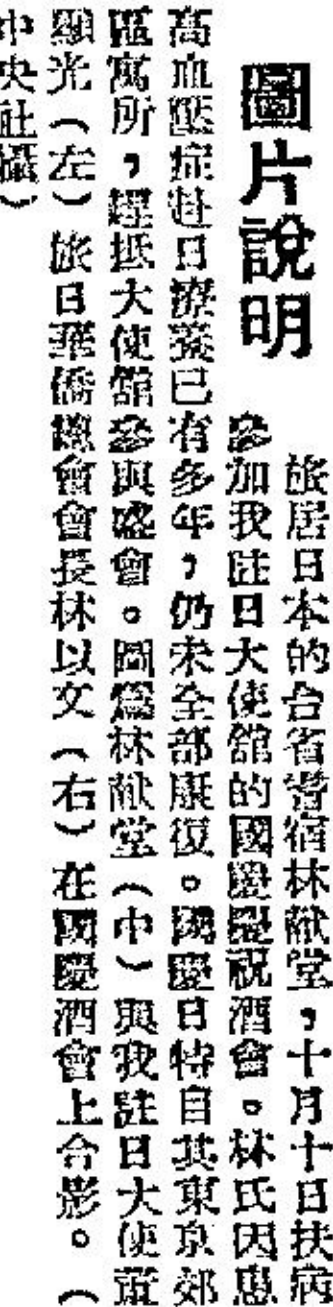 圖片說明
旅居日本的台省耆宿林献堂，十月十日扶病
參加我駐日大使館的國慶慶祝酒會。林氏因患
高血壓症赴日療養已有多年，仍未全部康復。國慶日特自其東京郊
區寓所，趕抵大使館參與盛會。圖爲林献堂（中）與我駐日大使董
顯光（左）旅日華僑總會會長林以文（右）在國慶酒會上合影。（
中央社攝）